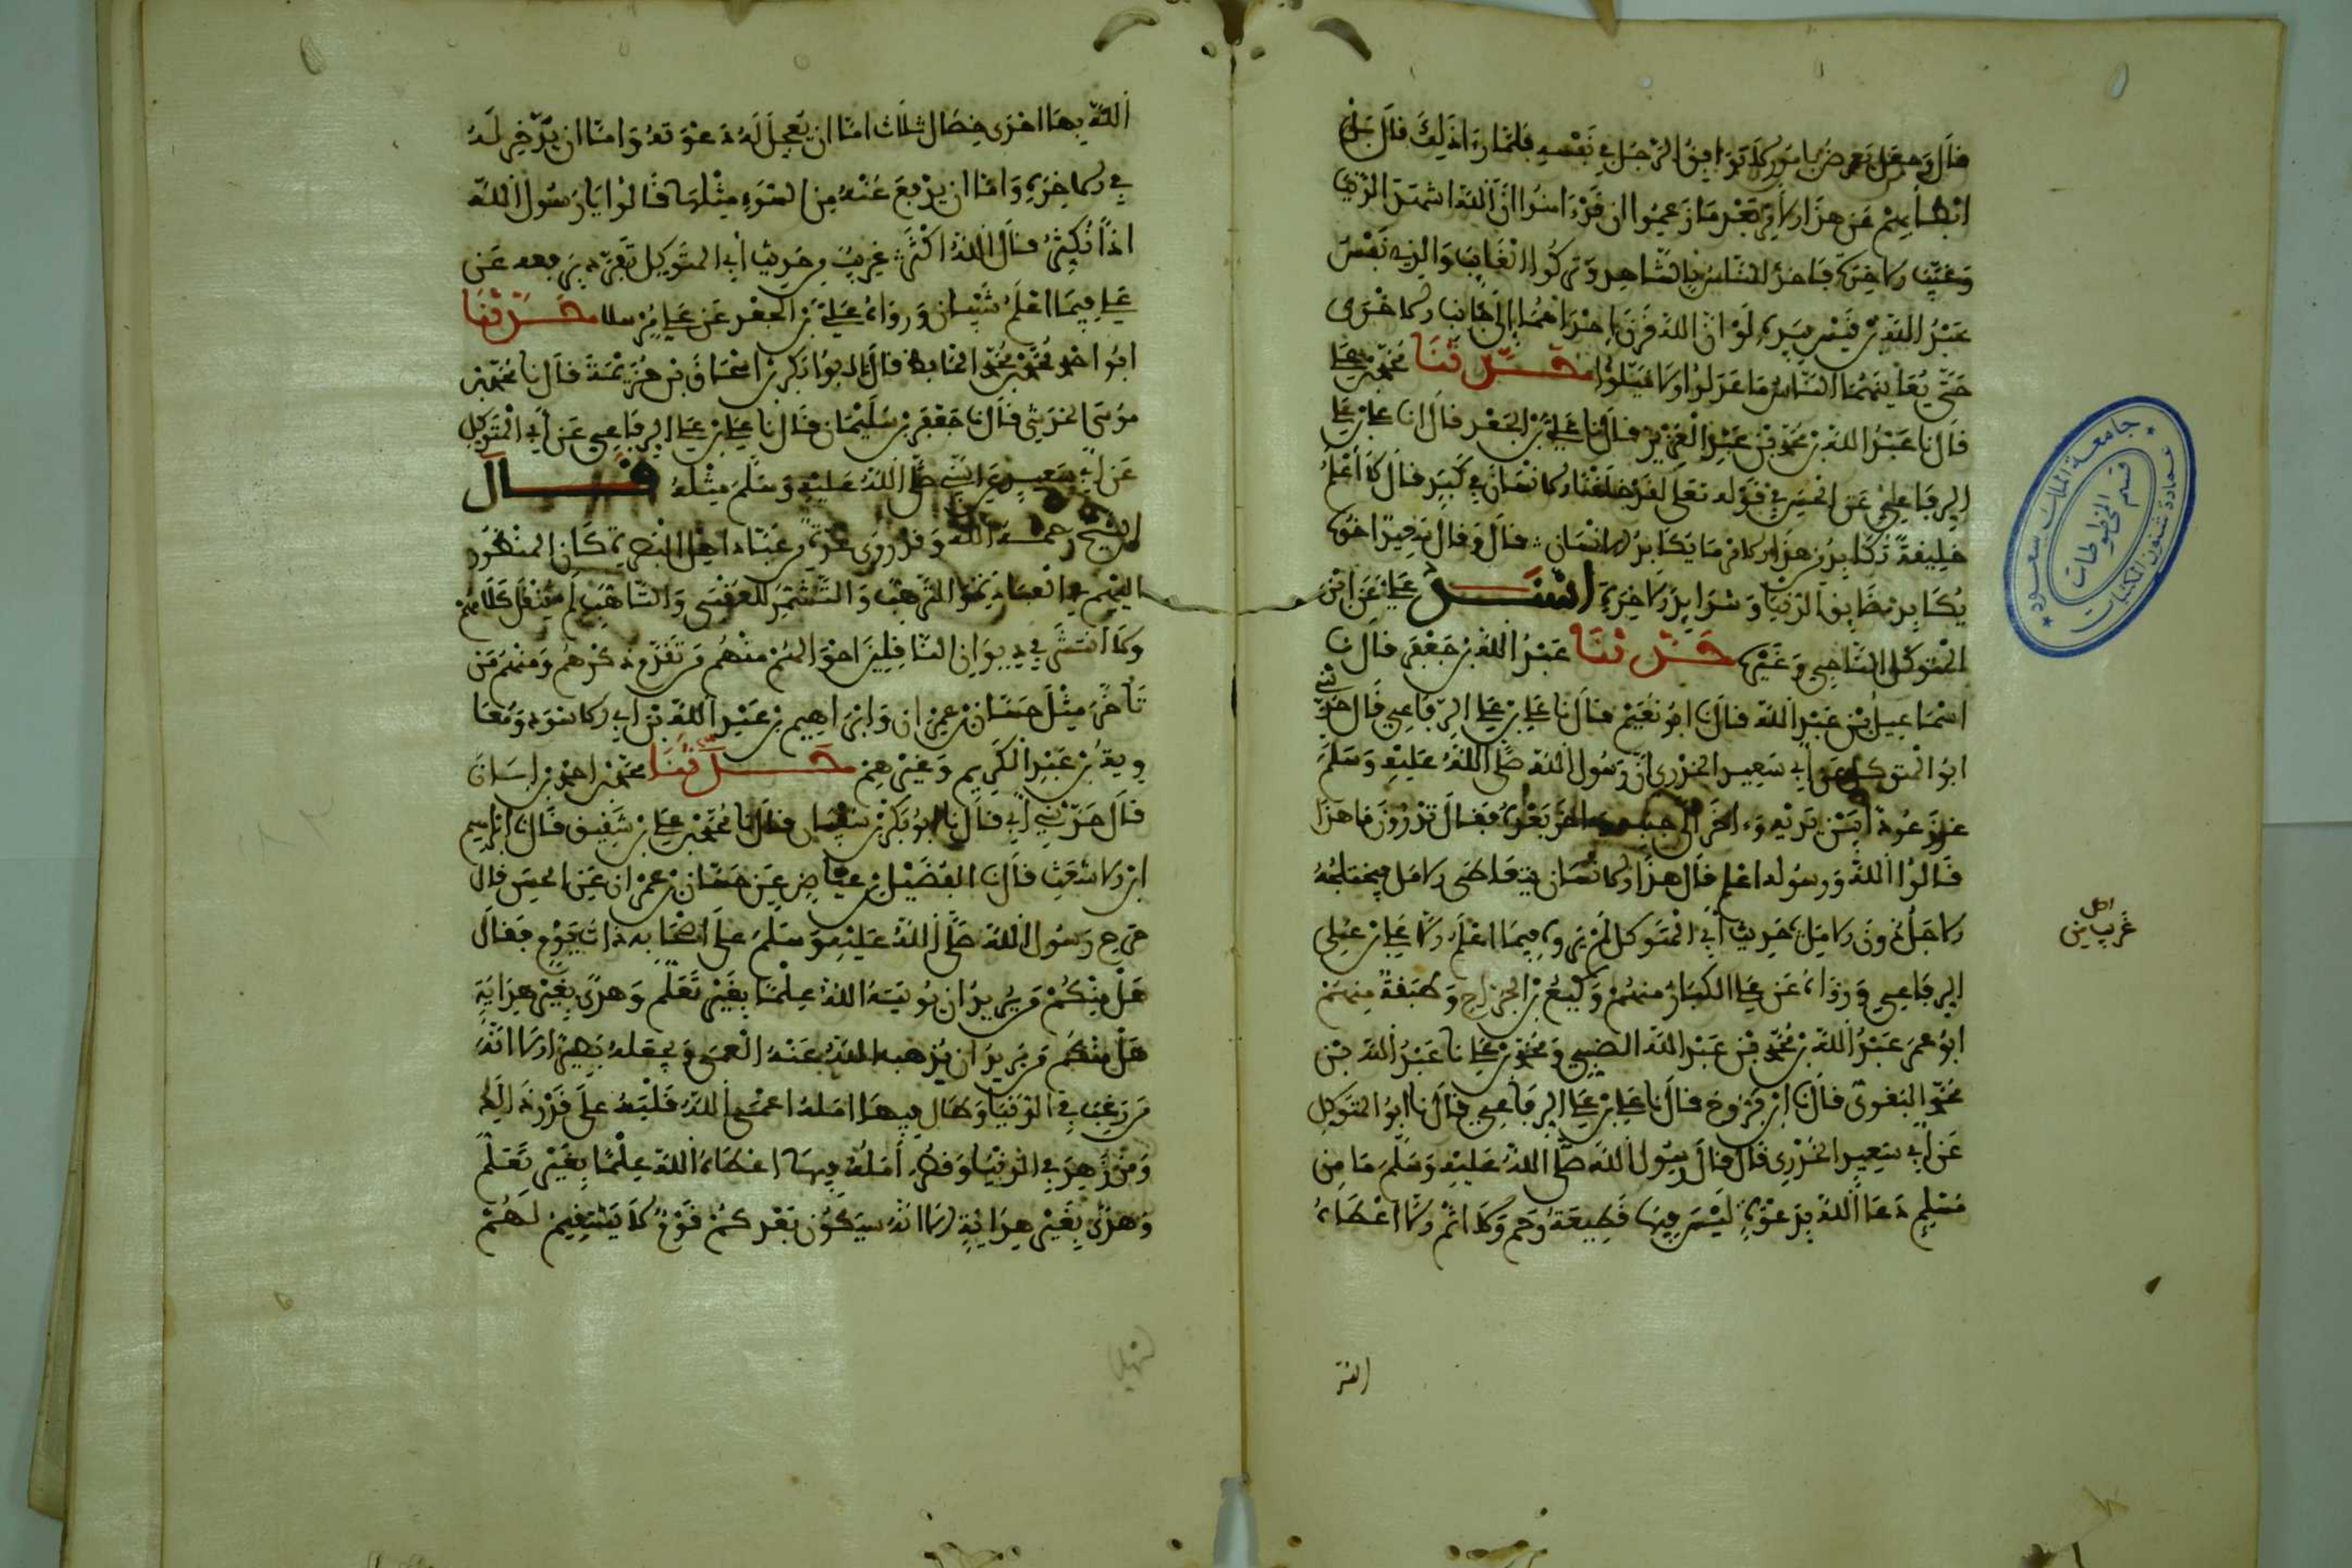 قال وجعل يعرض بامور لا توافق الرجل في نفسه فلما رءا ذلك قال
انطلابهم عن هذا الامر بعد ما زعموا ان قد ءامنوا ان الله اشهد الدنيا
وغيب الاخرة فاخذ الناس بالشاهد وتركوا الغايب والذي نفس
عبد الله بن قيس بيده لو ان الله قرن احداهما الى جانب الاخرى
حتى يعاينهما الناس ما عدلوا ولا ميلوا حدثنا محمد بن علي
قال نا عبد الله بن محمد بن عبد العزيز قال نا علي بن الجعد قال انا علي بن علي
الرفاعي عن الحسن في قوله تعلى لقد خلقنا الانسان في كبد قال لا اعلم
خليفة تكابد من هذا الامر ما يكابد الانسان قال وقال سعيد اخوه
يكابد مضايق الدنيا وشدايد الاخرة اسند علي عن ابي
المتوكل الناجي وغيره حدثنا عبد الله بن جعفر قال نا
اسماعيل بن عبد الله قال نا ابو نعيم قال نا علي بن علي الرفاعي قال حدثني
ابو المتوكل عن ابي سعيد الخدري ان رسول الله صلى الله عليه وسلم
غرز عودا بين يديه وءاخر الى جنبه وءاخر بعده فقال تدرون ما هذا
قالوا الله ورسوله اعلم قال هذا الانسان يتعاطى الامل فيختلجه
الاجل دون الامل حديث ابي المتوكل لم يروه فيما اعلم الا علي بن علي
اصل
غريب من
الرفاعي ورواه عن علي الكبار منهم وكيع بن الجراح وطبقة منهم
ابو عمر عبد الله بن محمد بن عبد الله الضبي ومحمد بن علي نا عبد الله بن
محمد البغوي قال نا ابن فروخ قال نا علي بن علي الرفاعي قال نا ابو المتوكل
عن ابي سعيد الخدري قال قال رسول الله صلى الله عليه وسلم ما من
مسلم دعا الله بدعوة ليس فيها قطيعة رحم ولا اثم الا اعطاه
الله
جامعة الملك سعود
عمادة شئون المكتبات
قسم المخطوطات
الله بها احدى خصال ثلاث اما ان يعجل له دعوته واما ان يدخر له
في الاخرة واما ان يدفع عنه من السوء مثلها قالوا يا رسول الله
اذا نكثر قال الله اكثر غريب من حديث ابي المتوكل تفرد برفعه عن
علي فيما اعلم شيبان ورواه علي بن الجعد عن علي مرسلا حدثنا
ابو احمد محمد بن محمد الحافظ قال نا ابو بكر بن اسحاق بن خزيمة قال نا محمد بن
موسى الحرشي قال نا جعفر بن سليمان قال نا علي بن علي الرفاعي عن ابي المتوكل
عن ابي سعيد عن النبي صلى الله عليه وسلم مثله قال
الشيخ رحمه الله وقد روى عدة من عباد اهل البصرة كان المنظور
اليهم في العباد نحو الترهب والتشمر للعقبى والتاهب لم ينقل كلامهم
ولا انتشر في ديوان الناقلين احوالهم منهم من تقدم ذكرهم ومنهم من
تاخر مثل حسان بن عمران وابراهيم بن عبد الله بن ابي الاسود ومعا
وية بن عبد الكريم وغيرهم حدثنا محمد بن احمد بن ابان
قال حدثني ابي قال نا ابو بكر بن سفيان قال نا محمد بن علي بن شقيق قال نا ابراهيم
ابن الاشعث قال نا الفضيل بن عياض عن حسان بن عمران عن الحسن قال
خرج رسول الله صلى الله عليه وسلم على اصحابه ذات يوم فقال
هل منكم من يريد ان يوتيه الله علما بغير تعلم وهدى بغير هداية
هل منكم من يريد ان يذهب الله عنه العمى ويجعله بصيرا الا انه
من رغب في الدنيا وطال فيها امله اعمى الله قلبه على قدر ذلك
ومن زهد في الدنيا وقصر امله فيها اعطاه الله علما بغير تعلم
وهدى بغير هداية الا انه سيكون بعدكم قوم لا يستقيم لهم